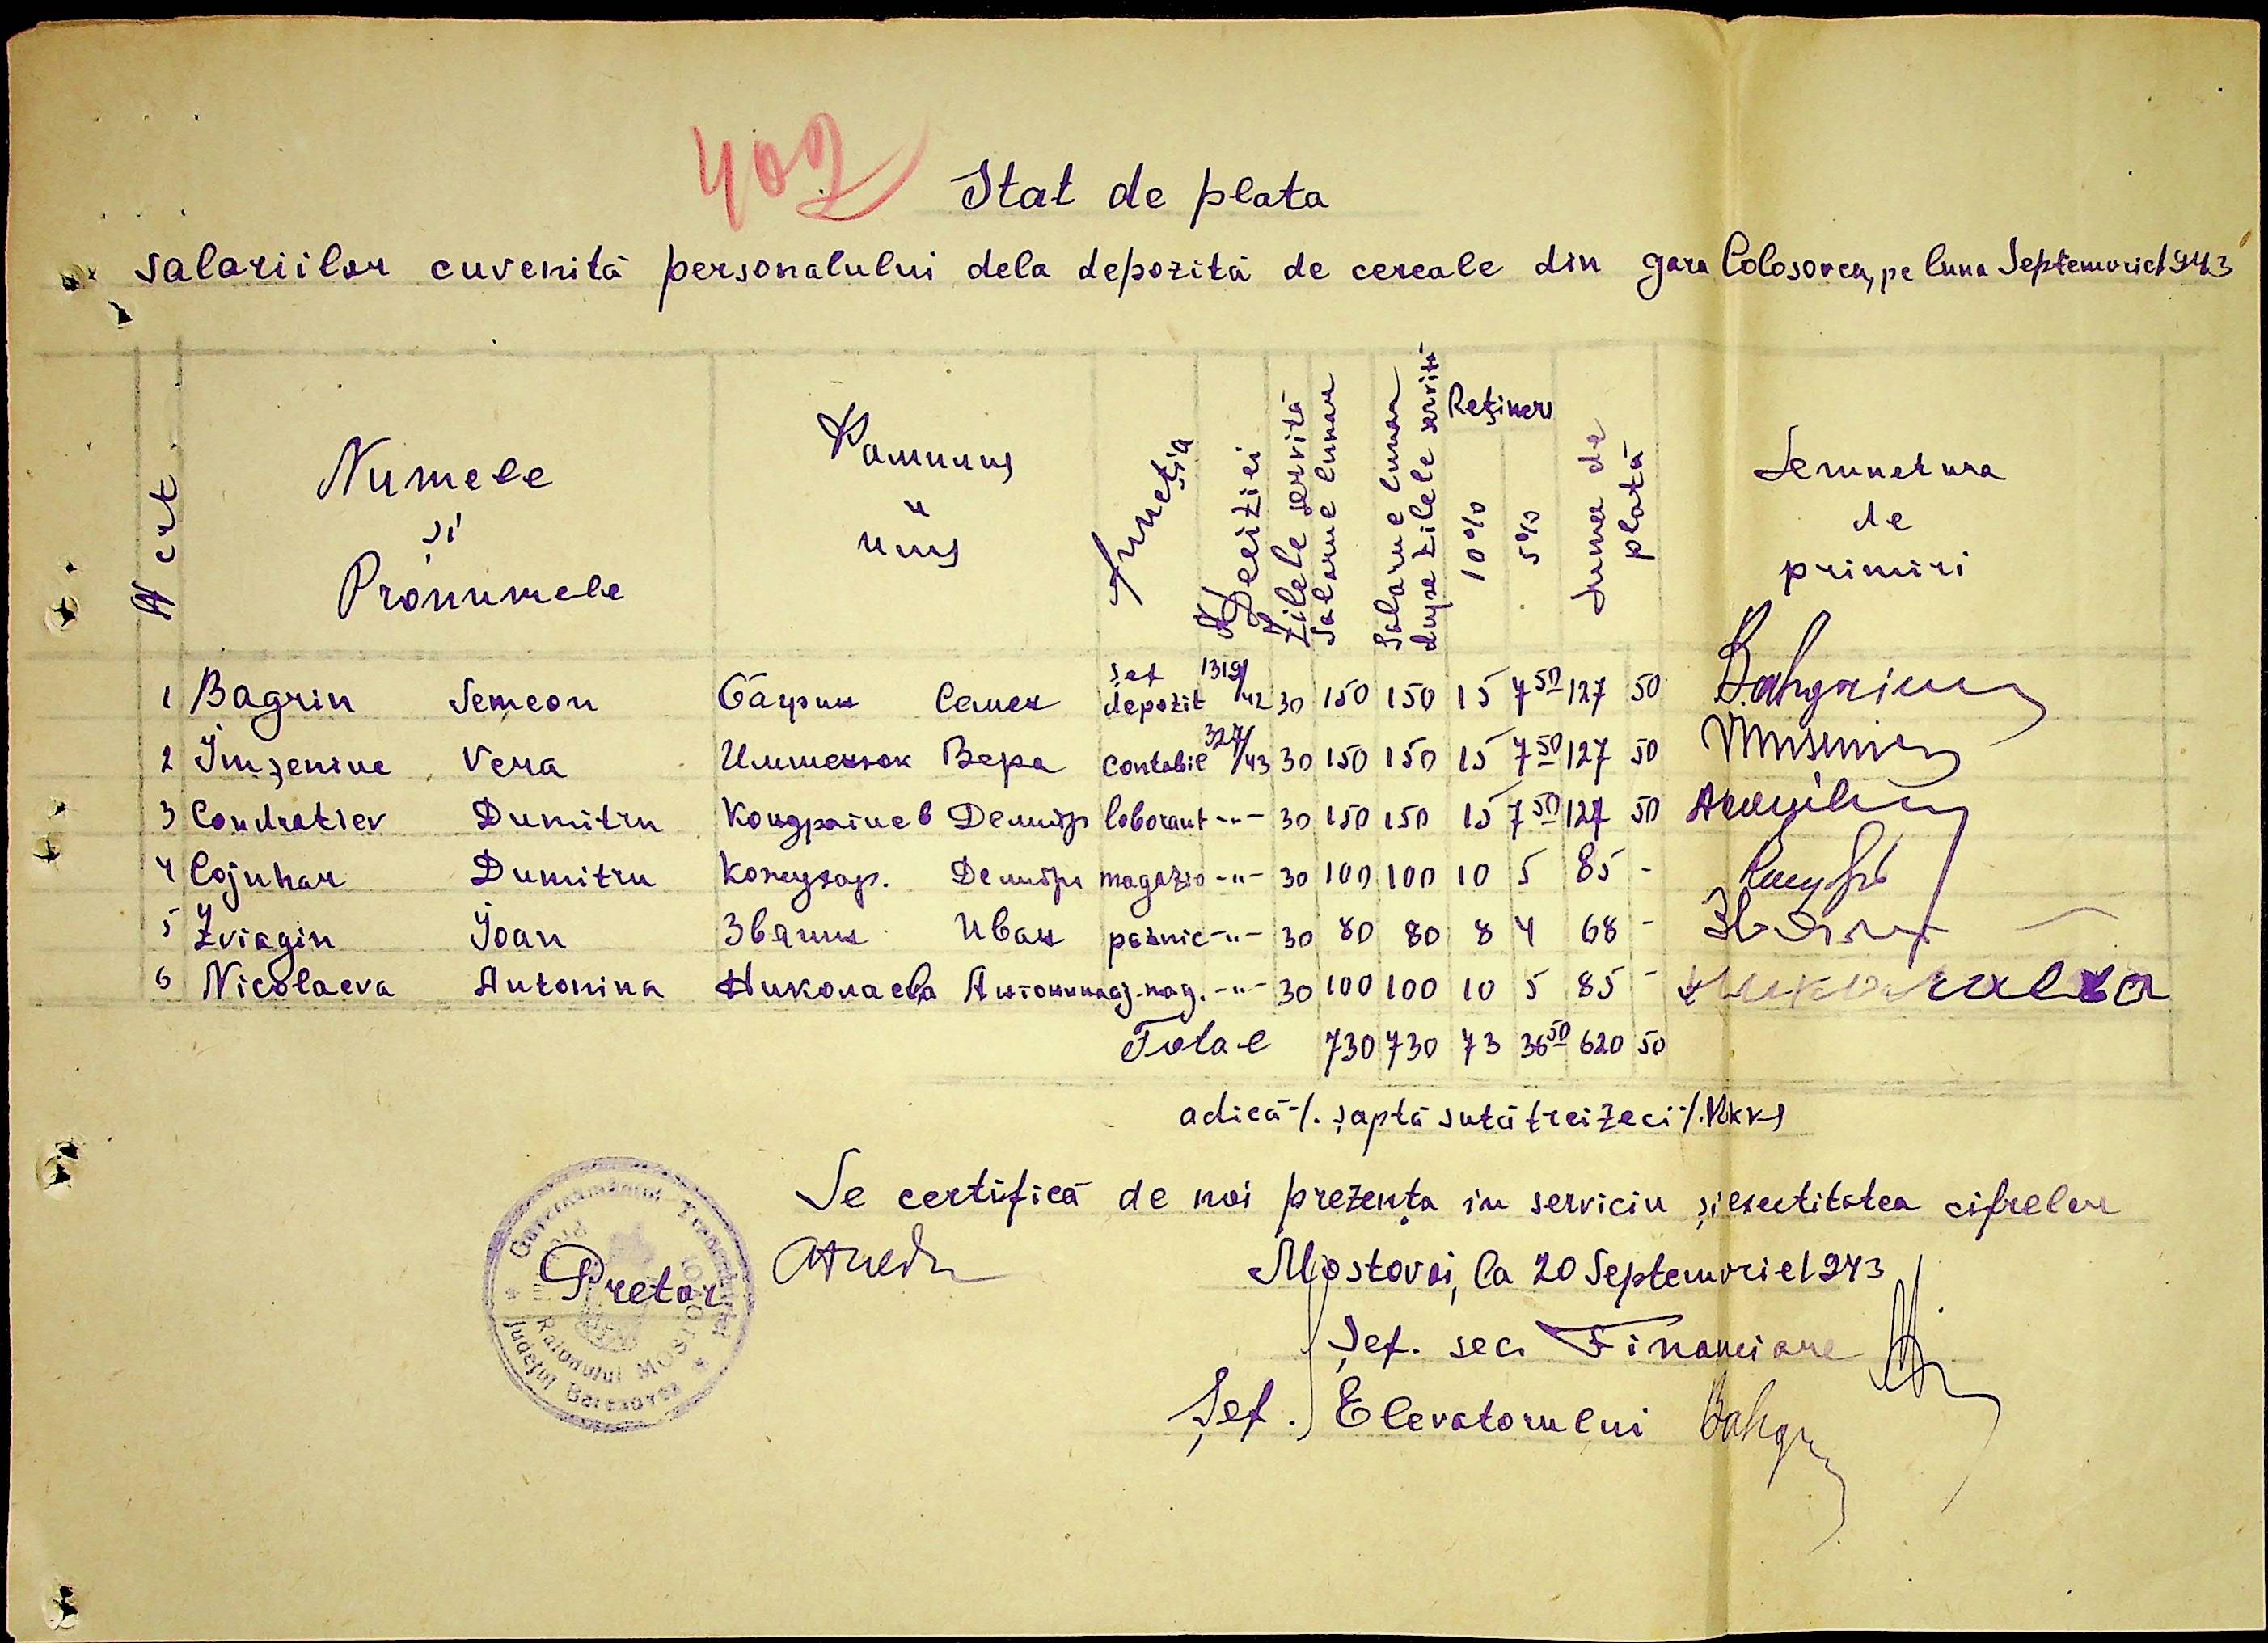 402
Stat de plata
salariilor cuvenită personalului dela depozită de cereale din gara Colosovca, pe luna Septemvrie 1943
N crt Numele și Pronumele Фамилия и имя Funcția N Deciziei Zilele servită Salarue lunar Salarue lunar dupa zilele servită Rețineri 10% 5% Suma de plată Semnetura de primiri
1 Bagrin Semeon Багрин Семен șef depozit 1319/42 30 150 150 15 7 50 127 50
2 Imșeniuc Vera Имшенюк Вера contabil 327/43 30 150 150 15 7 50 127 50
3 Condratiev Dumitru Кондратиев Демитр laborant -"- 30 150 150 15 7 50 127 50
4 Cojuhar Dumitru Кожухар. Демитр magazio -"- 30 100 100 10 5 85 -
5 Zviagin Ioan Звягин Иван paznic -"- 30 80 80 8 4 68 -
6 Nicolaeva Antonina Николаева Антонина aj. mag. -"- 30 100 100 10 5 85 - Николаева
Total 730 730 73 36 50 620 50
adică ·/. șaptă sută treizeci ·/. Rkks
Se certifică de noi prezența in serviciu și exectitatea cifrelor
Mostovoi, la 20 Septemvrie 1943
Pretor
Șef. sec. Financiare
Șef. Elevatorului
Guvernământul Transnistriei
Județul Berezovca
Raionului MOSTOVOI